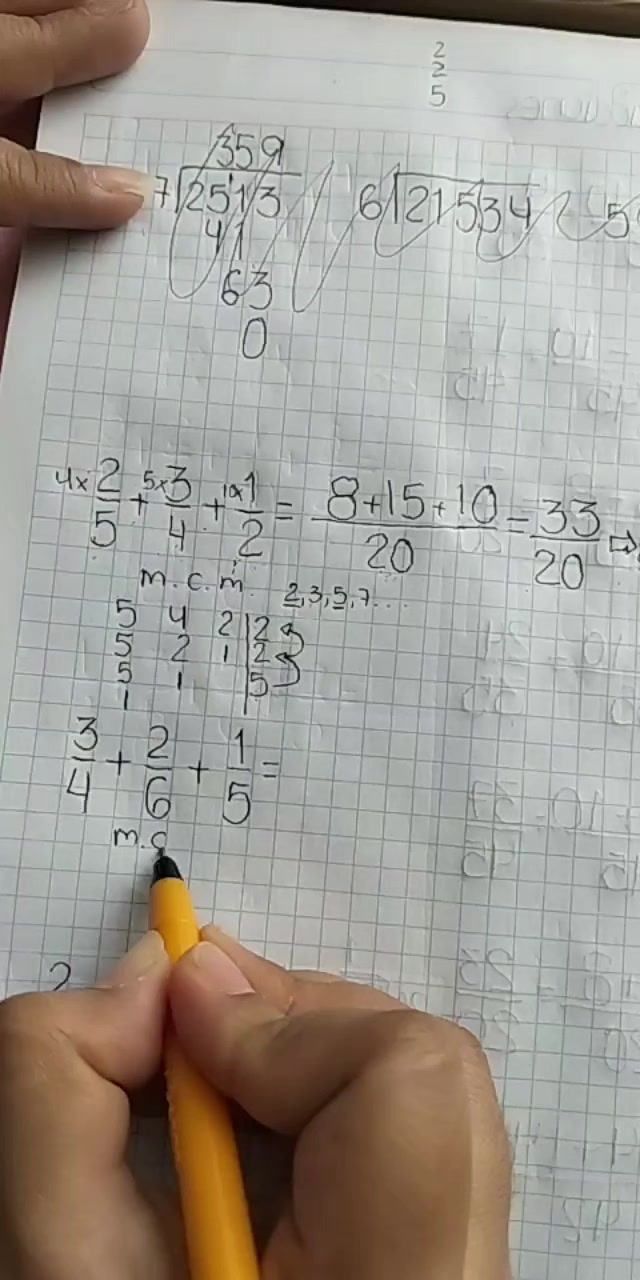 2
2
5
359
7 2513 6 21534 5
41
63
0
4x 2/5 + 5x 3/4 + 10x 1/2 = 8+15+10/20 = 33/20 ⇨
m.c.m. 2,3,5,7...
5 4 2 | 2
5 2 1 | 2
5 1 | 5
1
3/4 + 2/6 + 1/5 =
m.c
2